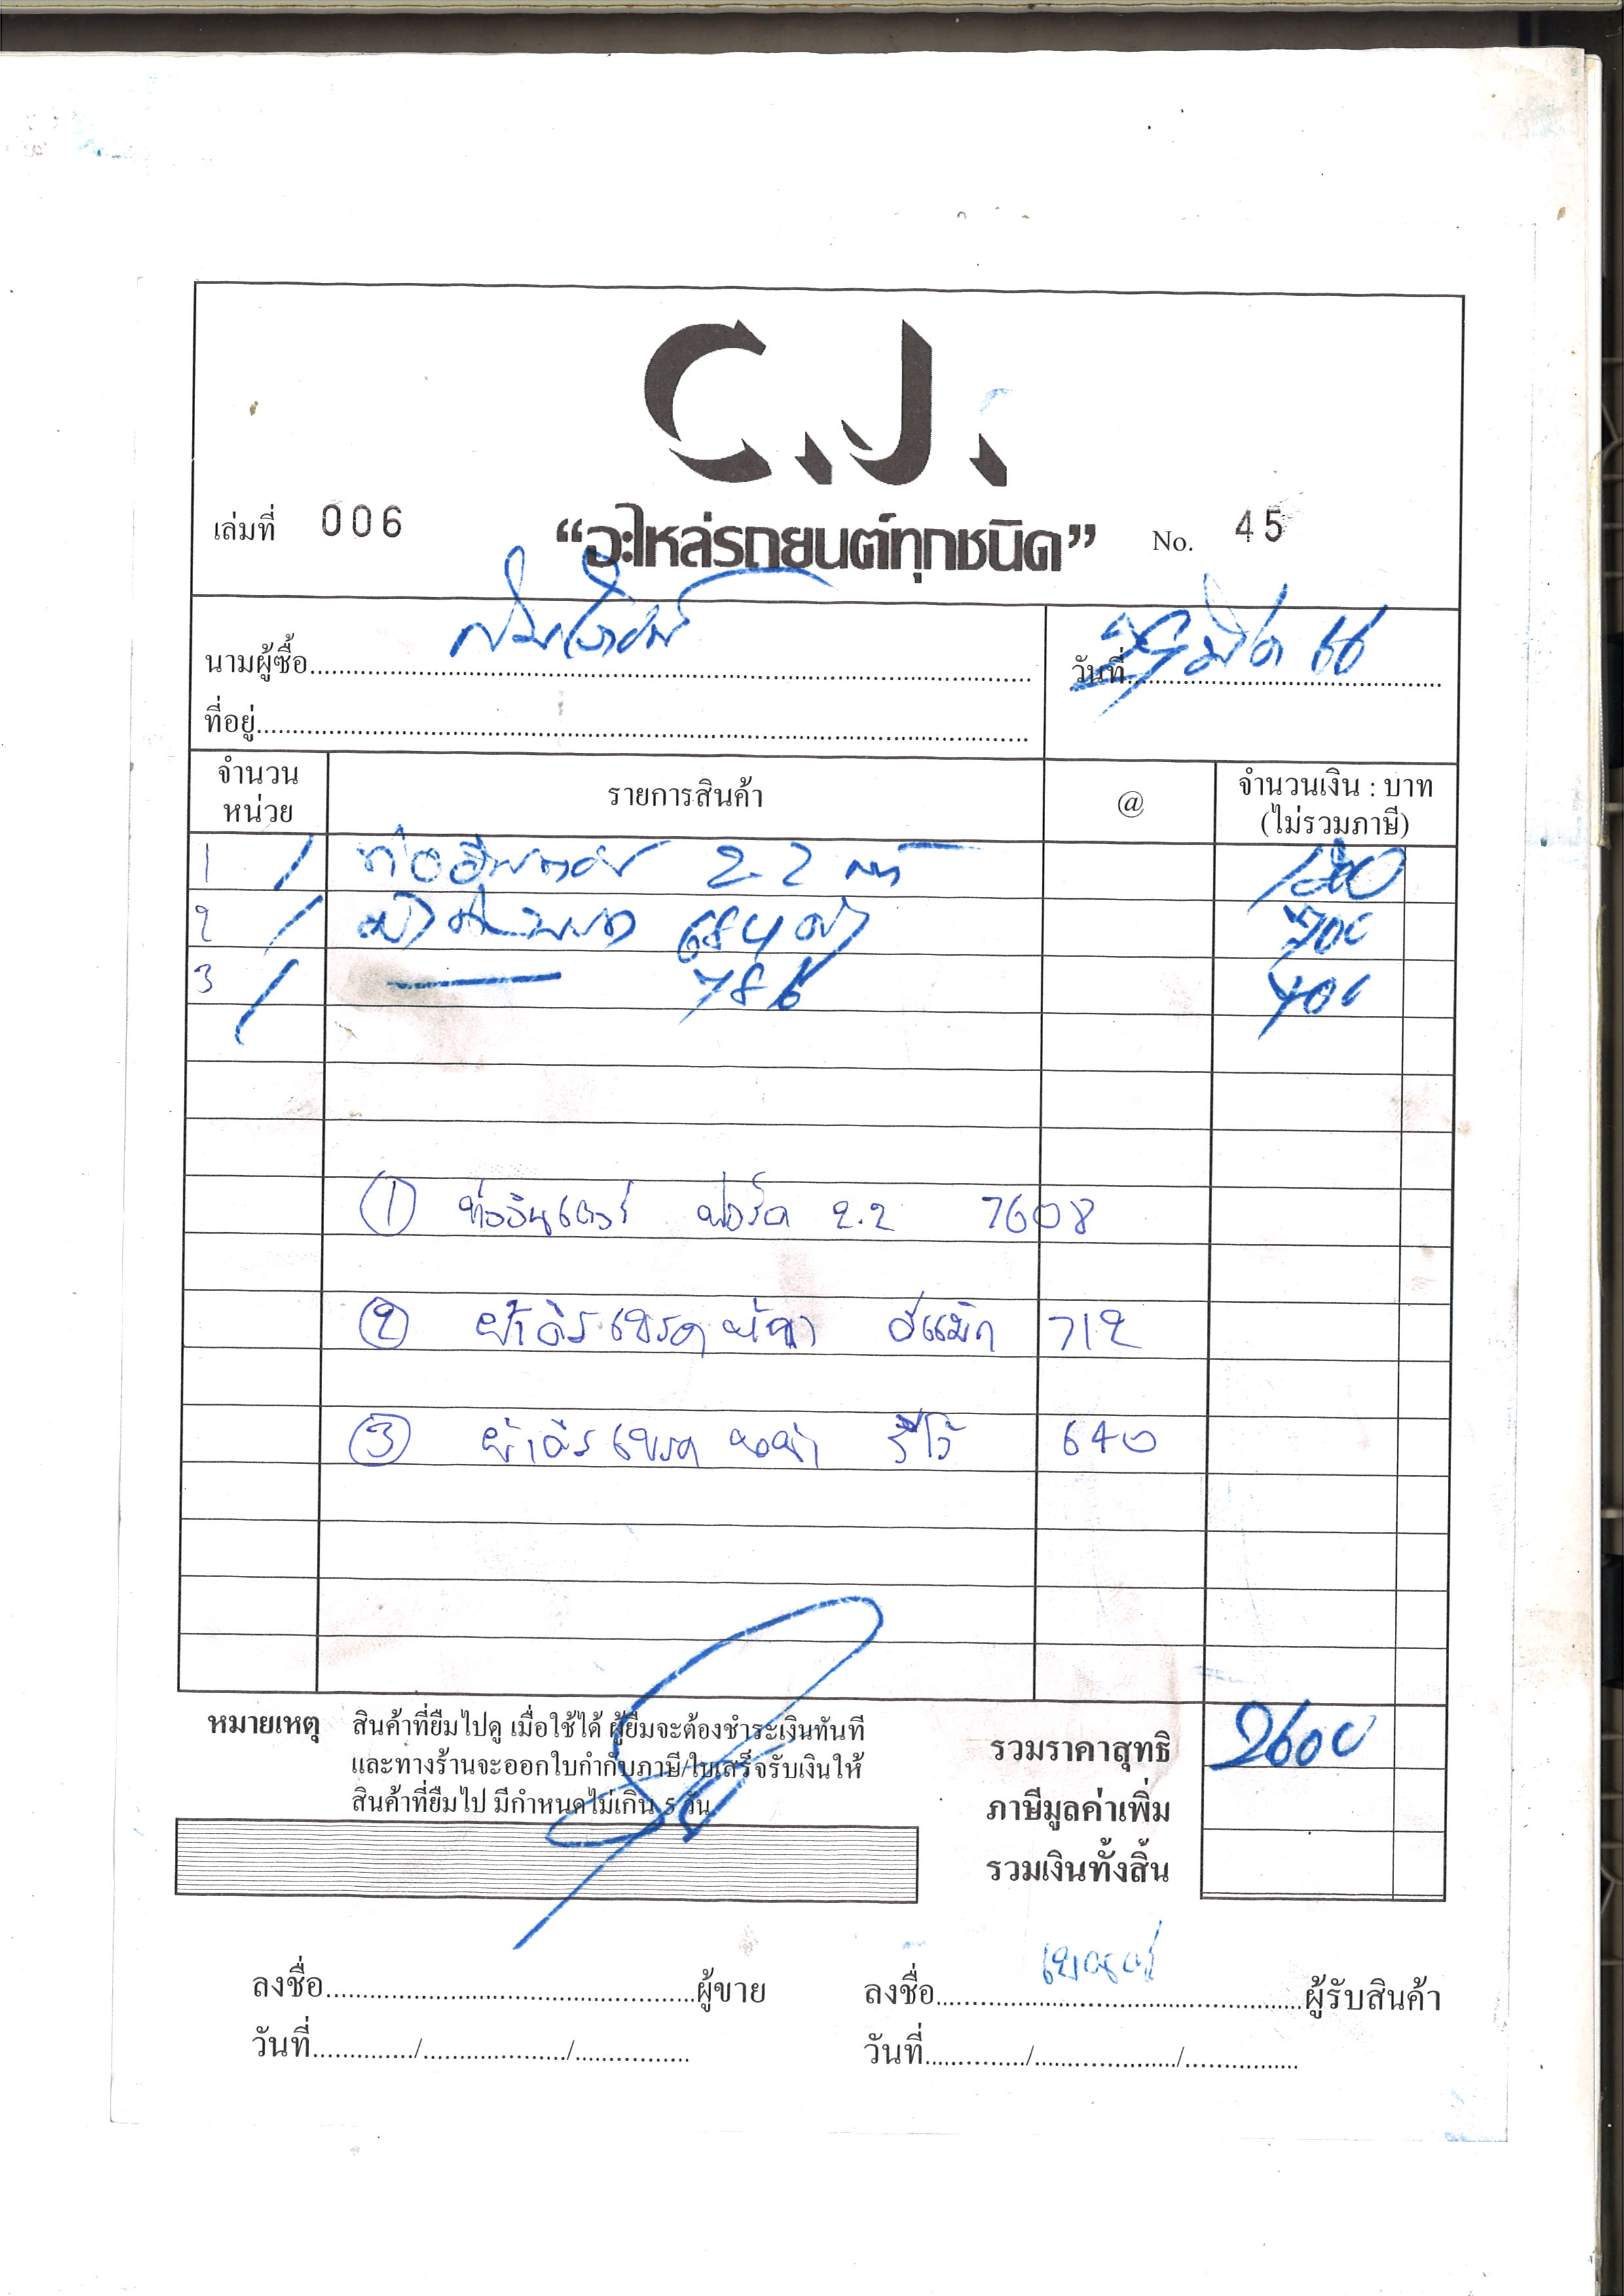 C.J.
เล่มที่ 006 "อะไหล่รถยนต์ทุกชนิด" No. 45
นามผู้ซื้อ วันที่ 66
ที่อยู่
จำนวน หน่วย รายการสินค้า @ จำนวนเงิน : บาท (ไม่รวมภาษี)
1 / ท่ออินเตอร์ 2.2 1200
2 / 684 700
3 / 786 700
① ท่ออินเตอร์ ฟอร์ด 2.2 7608
② ผ้าดิสเบรคหน้า ดีแม็ก 712
③ ผ้าดิสเบรคหน้า รีโว้ 640
หมายเหตุ สินค้าที่ยืมไปดู เมื่อใช้ได้ ผู้ยืมจะต้องชำระเงินทันที
และทางร้านจะออกใบกำกับภาษี/ใบเสร็จรับเงินให้
สินค้าที่ยืมไป มีกำหนดไม่เกิน 5 วัน
รวมราคาสุทธิ 2600
ภาษีมูลค่าเพิ่ม
รวมเงินทั้งสิ้น
ลงชื่อ ผู้ขาย ลงชื่อ ผู้รับสินค้า
วันที่ / / วันที่ / /